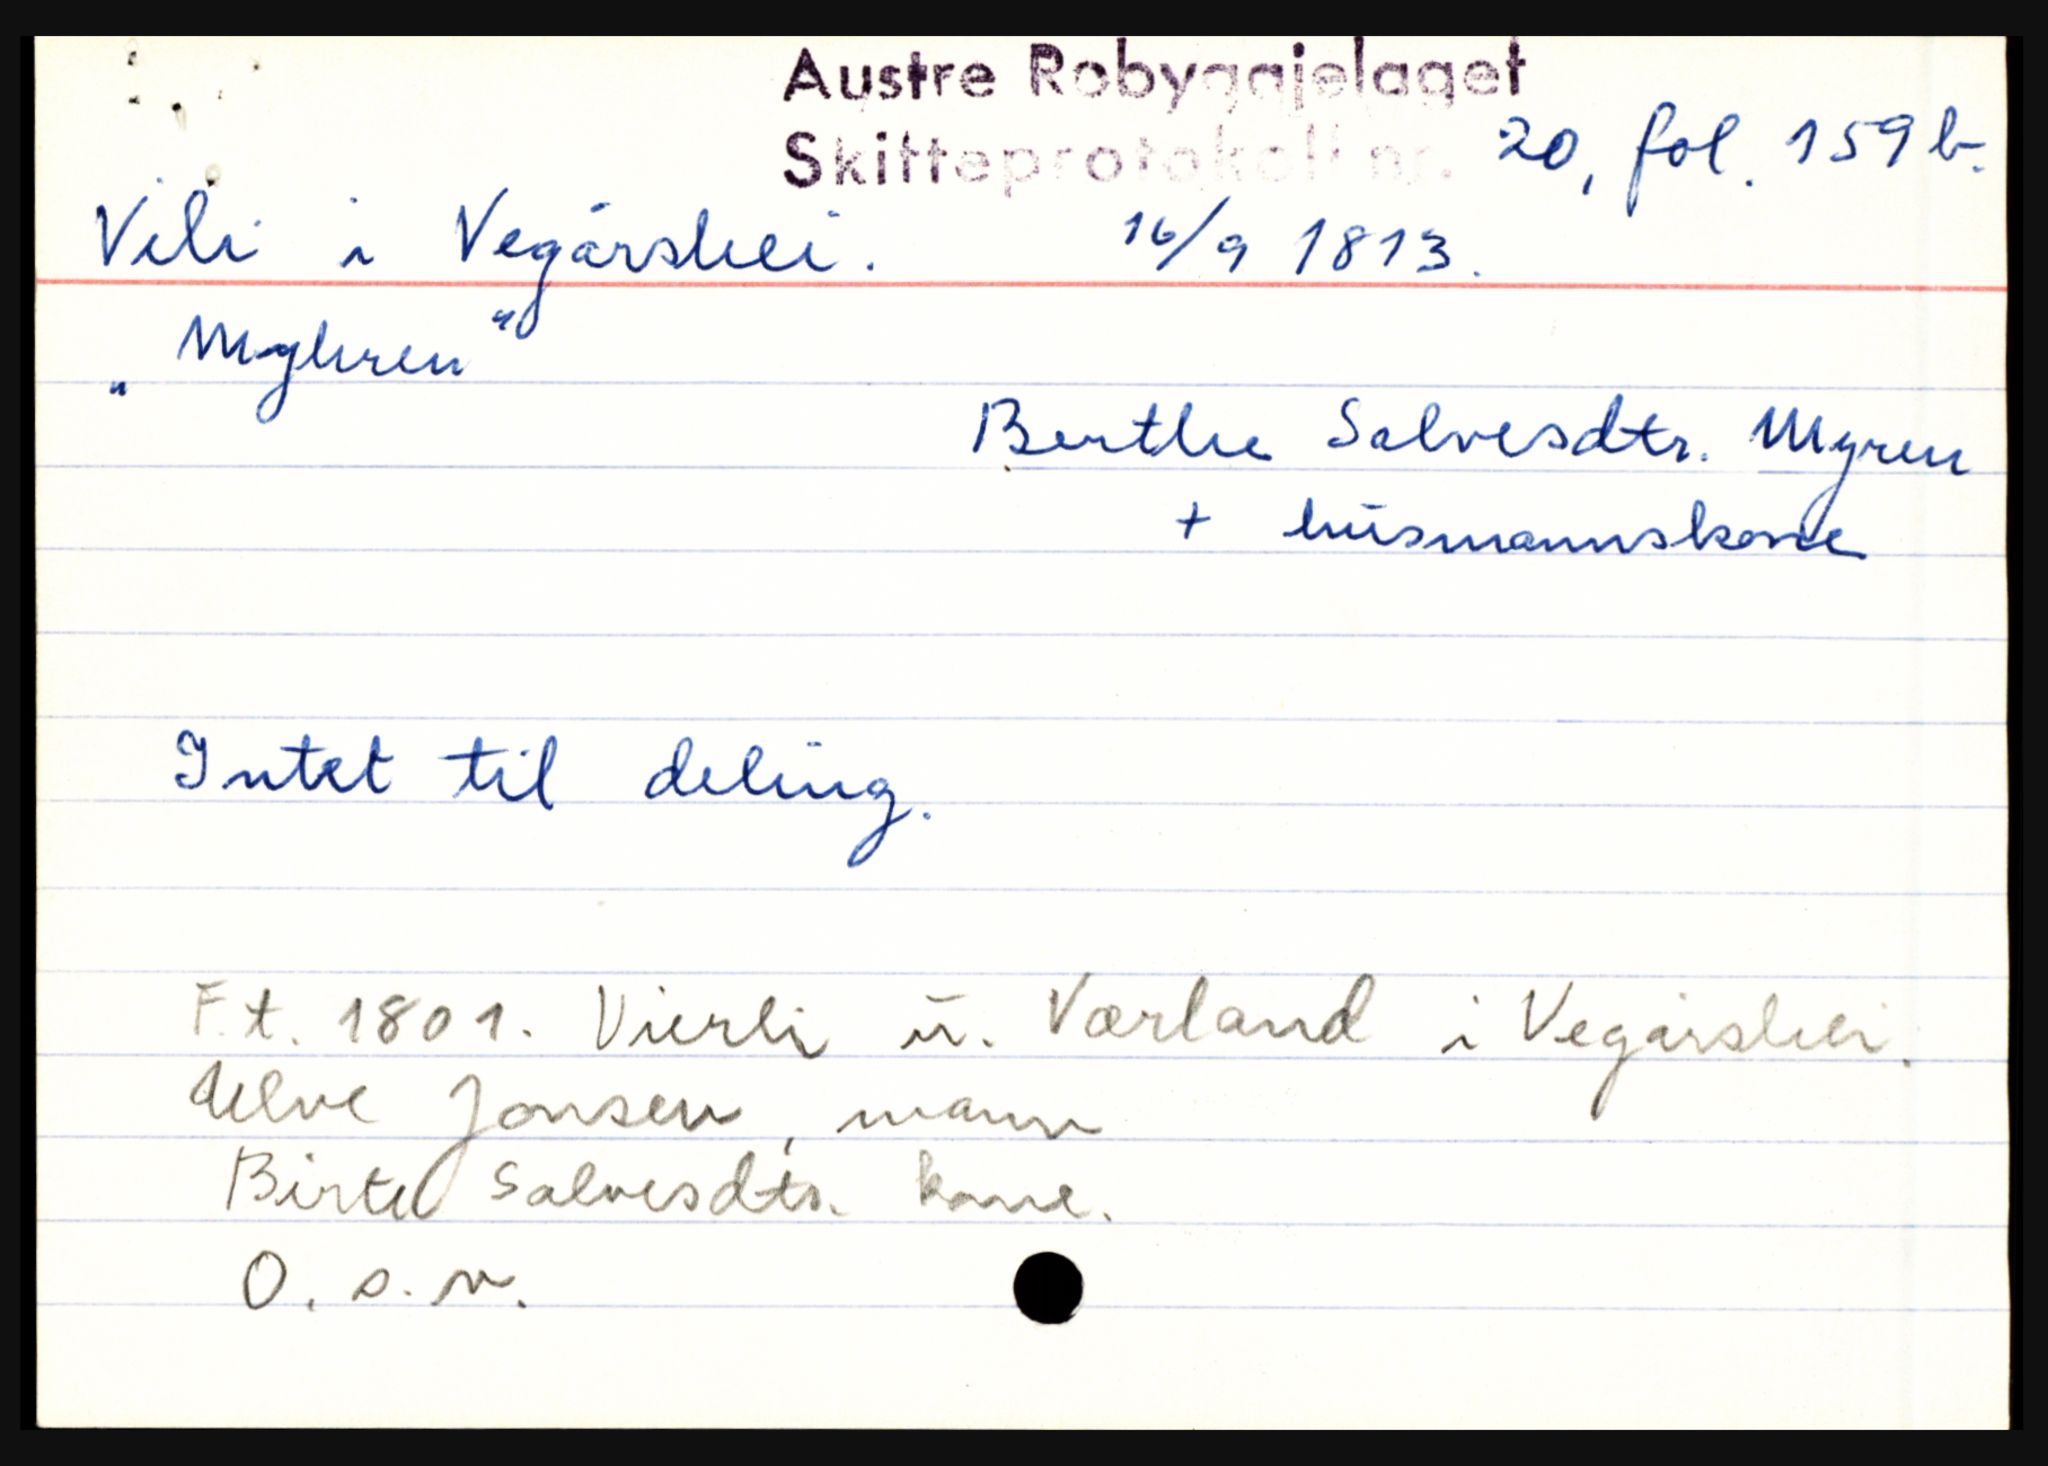 Austre Robyggjelaget
Skifteprotokoll nr. 20, fol. 159 b.
Vili i Vegårshei. 16/9 1813.
„Myhren"
Berthe Salvesdtr. Myren
+ husmannskone
Intet til deling.
F.t. 1801. Vierli u. Værland i Vegårshei.
Ulve Jonsen, mann
Birte Salvesdtr. kone.
O. s. v.